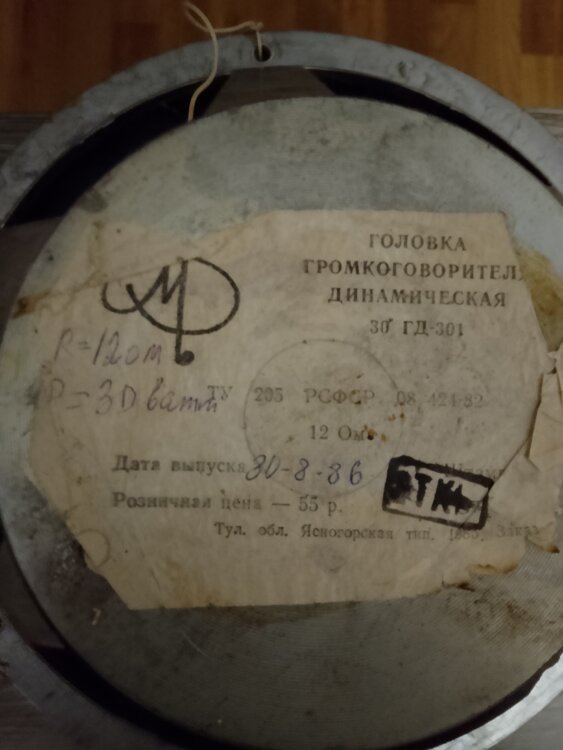 ГОЛОВКА
ГРОМКОГОВОРИТЕЛ
ДИНАМИЧЕСКАЯ
30 ГД-301
R=12 ом
P=30 ватт
ТУ 205 РСФСР 08.424-82
12 Ом
Дата выпуска 30-8-86
ОТК
Розничная цена — 55 р.
Тул. обл. Ясногорская тип. Заказ